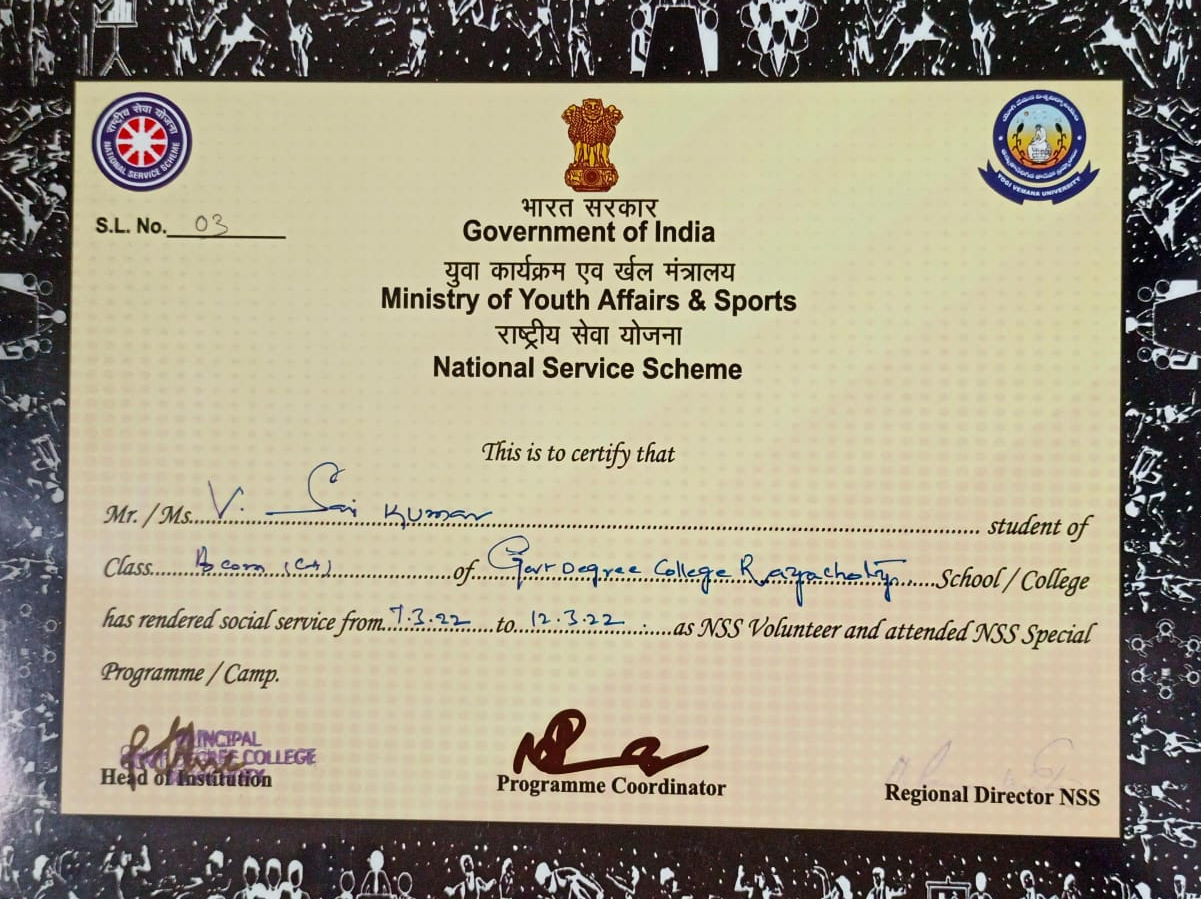 राष्ट्रीय सेवा योजना
NATIONAL SERVICE SCHEME
YOGI VEMANA UNIVERSITY
S.L. No. 03
भारत सरकार
Government of India
युवा कार्यक्रम एव र्खल मंत्रालय
Ministry of Youth Affairs & Sports
राष्ट्रीय सेवा योजना
National Service Scheme
This is to certify that
Mr. / Ms. V. Sai Kumar student of
Class Bcom (CA) of Govt Degree College Rayachoty School / College
has rendered social service from 7.3.22 to 12.3.22 as NSS Volunteer and attended NSS Special
Programme / Camp.
PRINCIPAL
DEGREE COLLEGE
Head of Institution
Programme Coordinator
Regional Director NSS